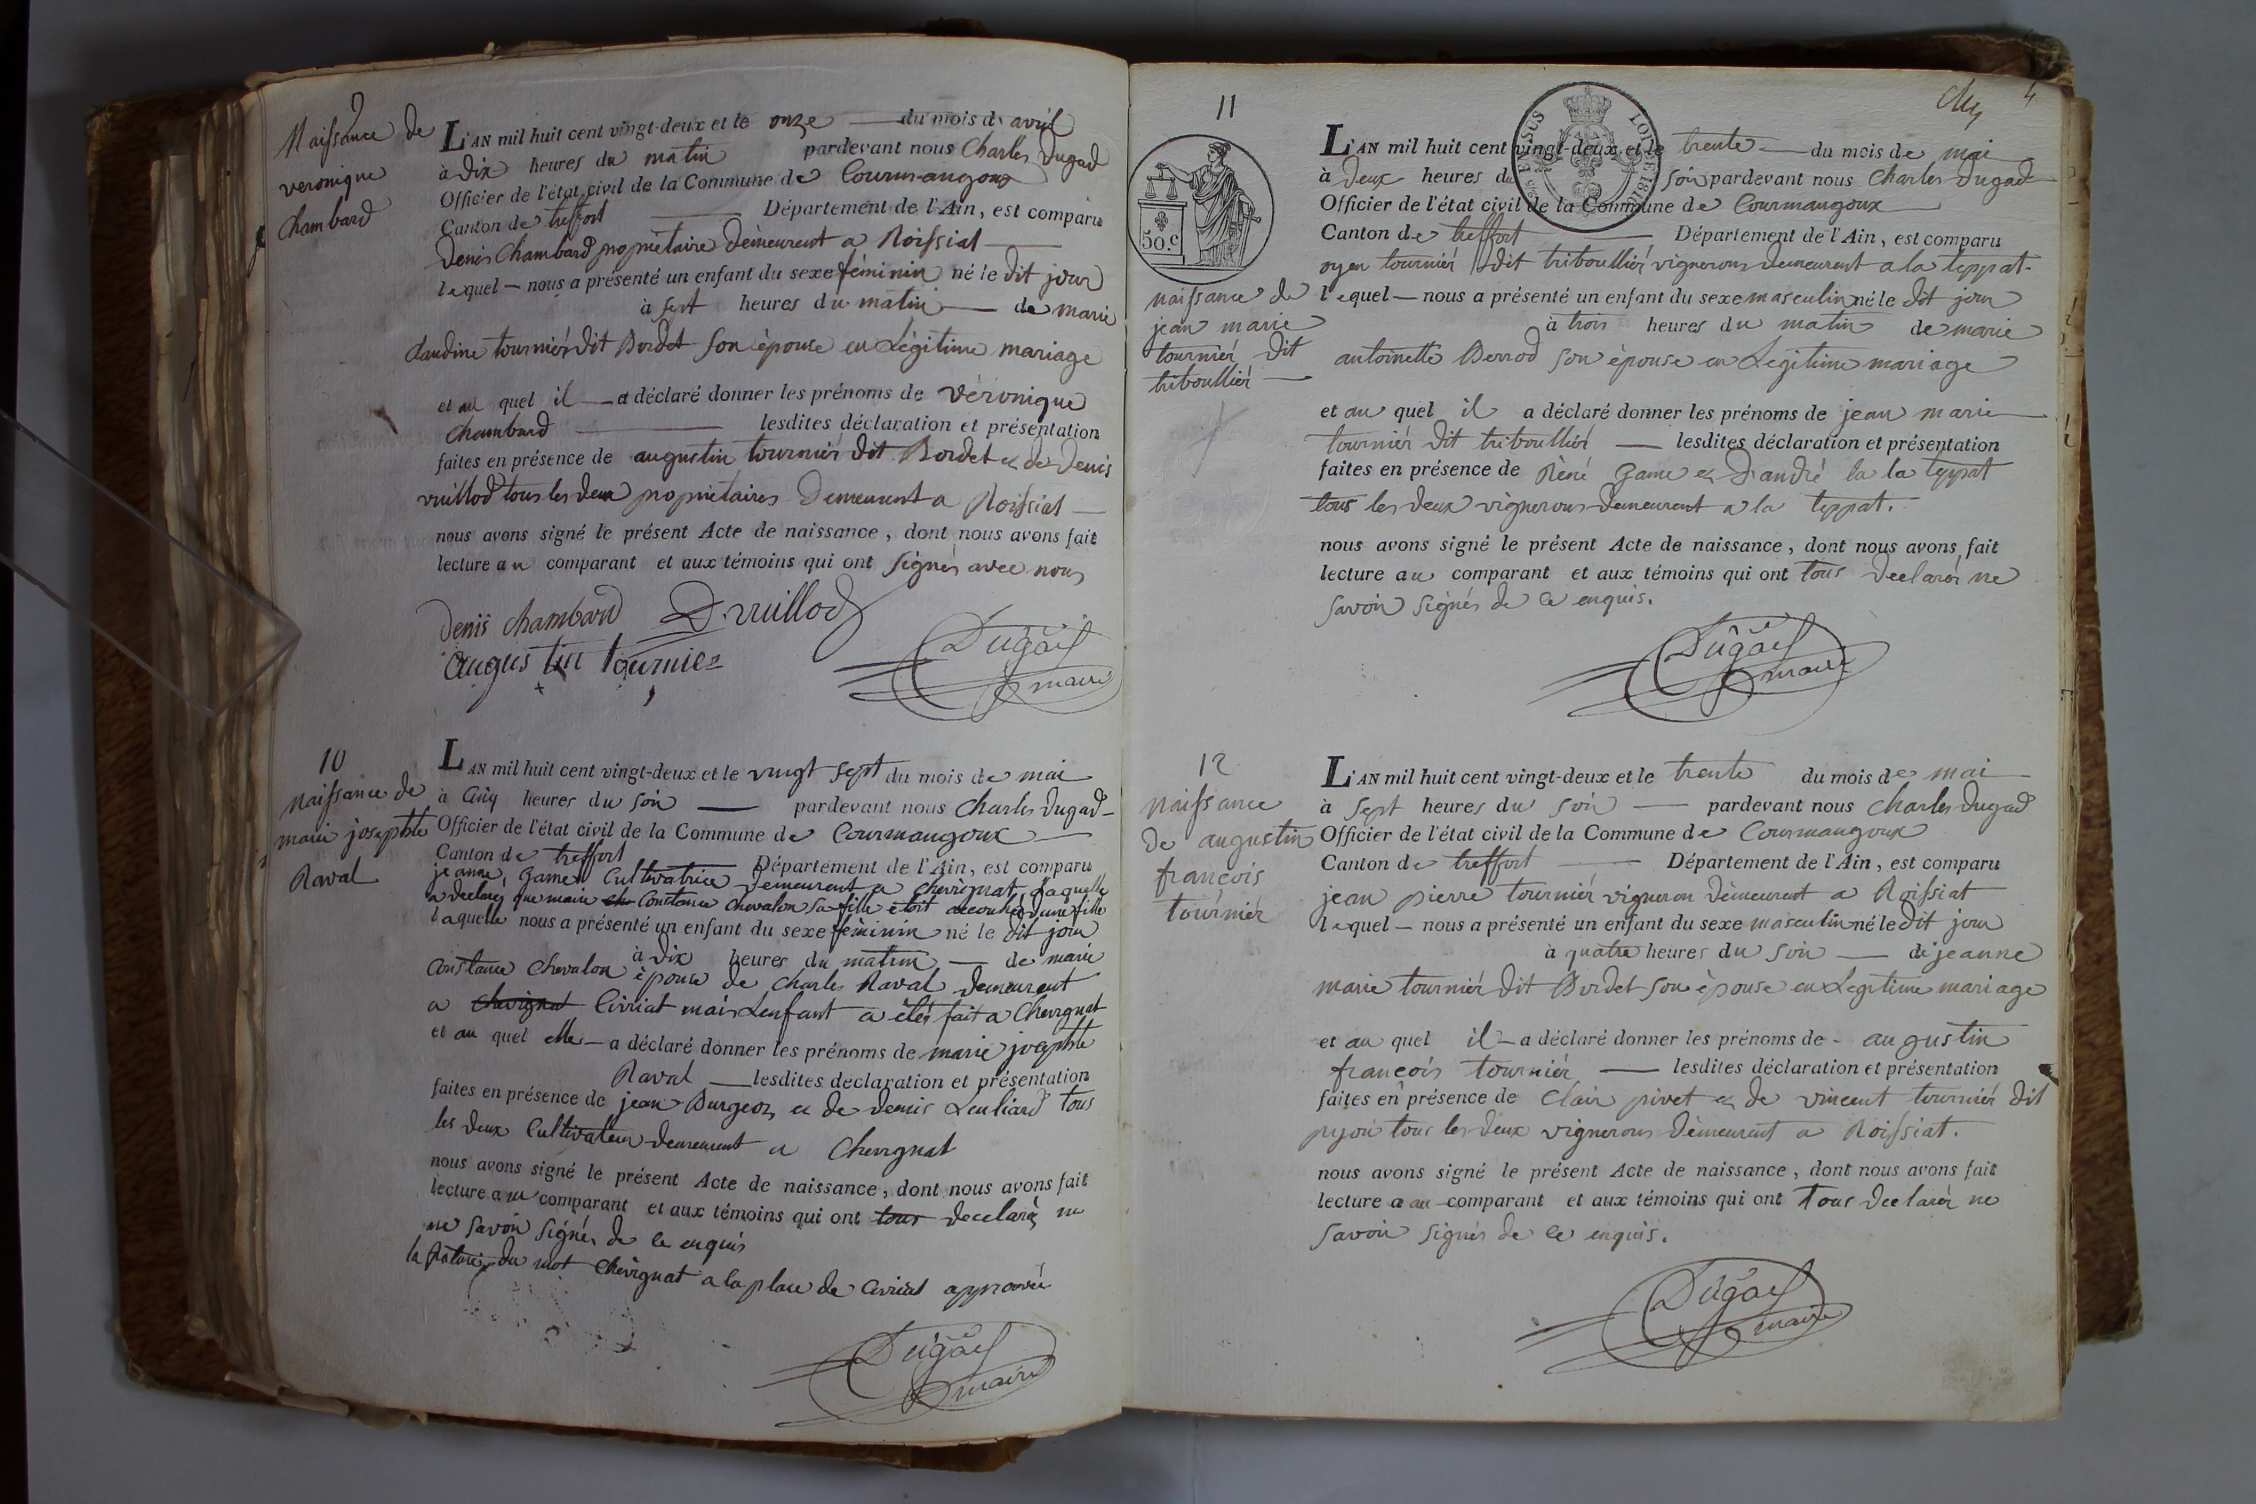 9
Naissance de
veronique
Chambard
L'AN mil huit cent vingt-deux et le onze du mois d avril
à dix heures du matin pardevant nous Charles Dugad
Officier de l'état civil de la Commune de Courmangoux
Canton de treffort Département de l'Ain, est comparu
Denis Chambard propriètaire dèmeurent a Roissiat
lequel nous a présenté un enfant du sexe féminin né le dit jour
à sept heures du matin de marie
claudine tourniér dit Bordet son èpouse en Légitime mariage
et au quel il a déclaré donner les prénoms de véronique
Chambard lesdites déclaration et présentation
faites en présence de augustin tourniér dit Bordet et de Denis
vuillod tous les deux propriètaires demeurent a Roissiat
nous avons signé le présent Acte de naissance, dont nous avons fait
lecture au comparant et aux témoins qui ont signés avec nous
Denis chambard D. vuillod
augustin tournier
Dugad
maire
10
naissance de
marie josephte
Raval
L'AN mil huit cent vingt-deux et le vingt sept du mois de mai
à cinq heures du soir pardevant nous Charles Dugad
Officier de l'état civil de la Commune de Courmangoux
Canton de treffort Département de l'Ain, est comparu
jeanne game cultivatrice demeurent a chevignat, Laquelle
a declarés que marie Constance chevalon sa fille étoit accouchés d'une fille
laquelle nous a présenté un enfant du sexe féminin né le dit jour
à dix heures du matin de marie
Constance chevalon èpouse de Charles Raval demeurent
a chevignat Civriat mais Lenfant a étés fait a Chevignat
et au quel elle a déclaré donner les prénoms de marie josephte
Raval lesdites declaration et présentation
faites en présence de jean Burgeon et de denis Leuliard tous
les deux cultivateur demeurent a Chevignat
nous avons signé le présent Acte de naissance, dont nous avons fait
lecture au comparant et aux témoins qui ont tous declarés ne
ne savoir signés de ce enquis
la rature du mot chevignat a la place de Civriat approuvée
Dugad
maire
4
11
50.c
naissance de
jean marie
tourniér dit
triboulliér
L'AN mil huit cent vingt-deux et le trente du mois de mai
à deux heures du soir pardevant nous Charles Dugad
Officier de l'état civil de la Commune de Courmangoux
Canton de treffort Département de l'Ain, est comparu
oyen tourniér dit triboulliér vignerons demeurent a la teppat
lequel nous a présenté un enfant du sexe masculin né le dit jour
à trois heures du matin de marie
antoinette Berrod son èpouse en Legitime mariage
et au quel il a déclaré donner les prénoms de jean marie
tourniér dit triboulliér lesdites déclaration et présentation
faites en présence de Réné game et D'andré la la teppat
tous les deux vignerons demeurent a la teppat.
nous avons signé le présent Acte de naissance, dont nous avons fait
lecture au comparant et aux témoins qui ont tous declarés ne
savoir signés de ce enquis.
Dugad
maire
12
Naissance
de augustin
françois
tourniér
L'AN mil huit cent vingt-deux et le trente du mois de mai
à sept heures du soir pardevant nous Charles Dugad
Officier de l'état civil de la Commune de Courmangoux
Canton de treffort Département de l'Ain, est comparu
jean pierre tourniér vigneron dèmeurent a Roissiat
lequel nous a présenté un enfant du sexe masculin né le dit jour
à quatre heures du soir de jeanne
marie tourniér dit Bordet son èpouse en Legitime mariage
et au quel il a déclaré donner les prénoms de augustin
françois tourniér lesdites déclaration et présentation
faites en présence de Clair pivet et de vincent tourniér dit
pyon tous les deux vignerons dèmeurent a Roissiat.
nous avons signé le présent Acte de naissance, dont nous avons fait
lecture a au comparant et aux témoins qui ont tous declarés ne
savoir signés de ce enquis.
Dugad
maire